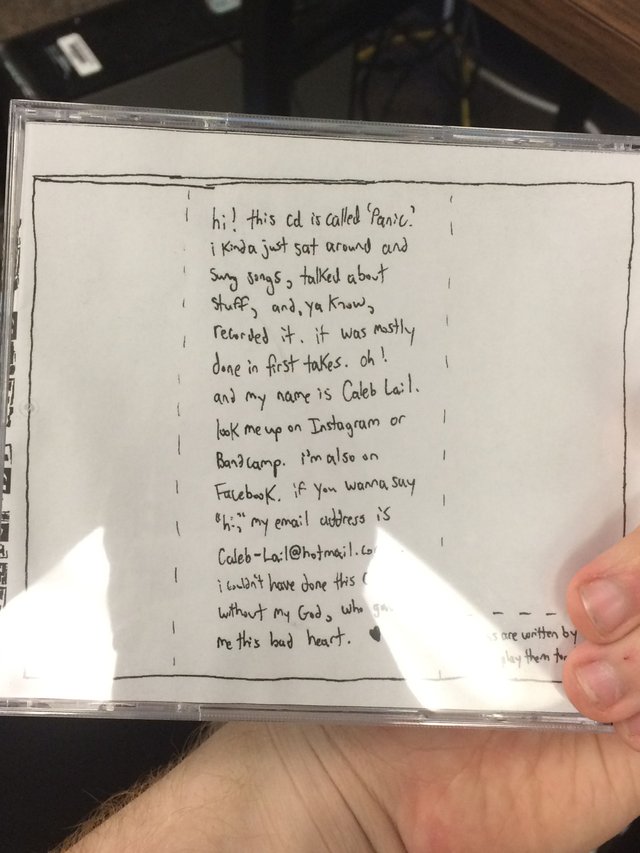 hi! this cd is called 'Panic.'
i kinda just sat around and
sung songs, talked about
stuff, and, ya know,
recorded it. it was mostly
done in first takes. oh!
and my name is Caleb Lail.
look me up on Instagram or
Bandcamp. i'm also on
Facebook. if you wanna say
"hi;" my email address is
Caleb-Lail@hotmail.co
i couldn't have done this
without my God, who
me this bad heart. ♥
are written by
play them